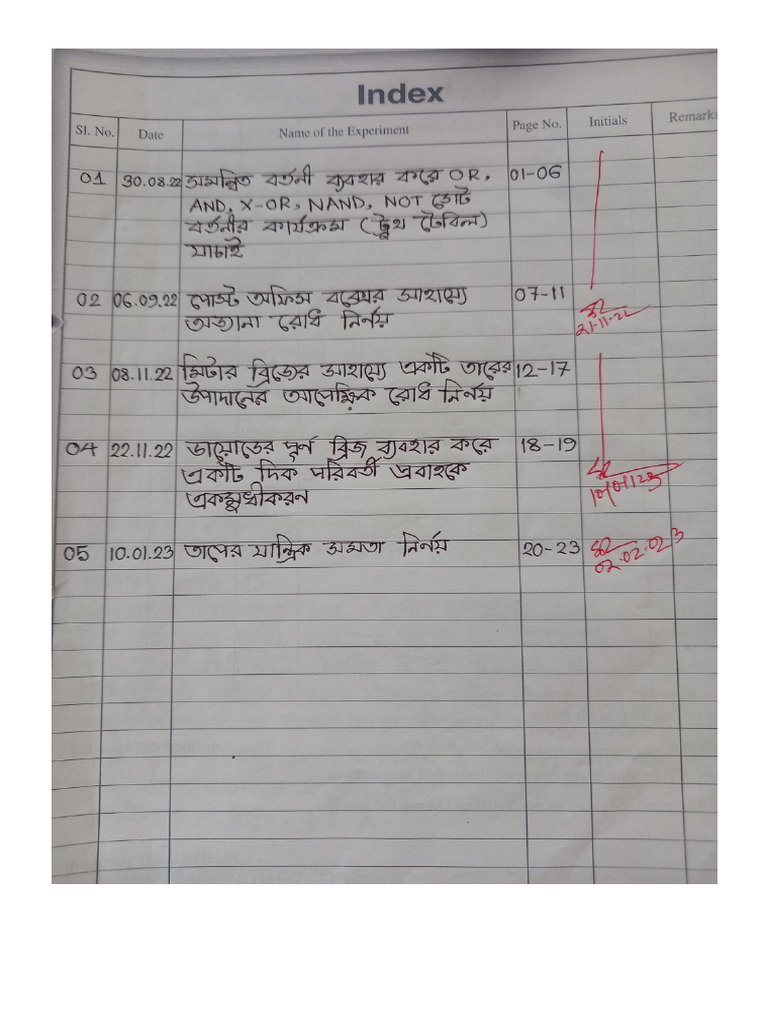 Index
Sl. No. Date Name of the Experiment Page No. Initials Remarks
01 30.08.22 সমন্বিত বর্তনী ব্যবহার করে OR, 01-06
AND, X-OR, NAND, NOT গেট
বর্তনীর কার্যক্রম (ট্রুথ টেবিল)
যাচাই
02 06.09.22 পোস্ট অফিস বক্সের সাহায্যে 07-11
অজানা রোধ নির্ণয় 21.11.22
03 08.11.22 মিটার ব্রিজের সাহায্যে একটি তারের 12-17
উপাদানের আপেক্ষিক রোধ নির্ণয়
04 22.11.22 ডায়োডের পূর্ন ব্রিজ ব্যবহার করে 18-19
একটি দিক পরিবর্তী প্রবাহকে
একমুখীকরন 10/01/23
05 10.01.23 তাপের যান্ত্রিক সমতা নির্ণয় 20-23
02.02.023